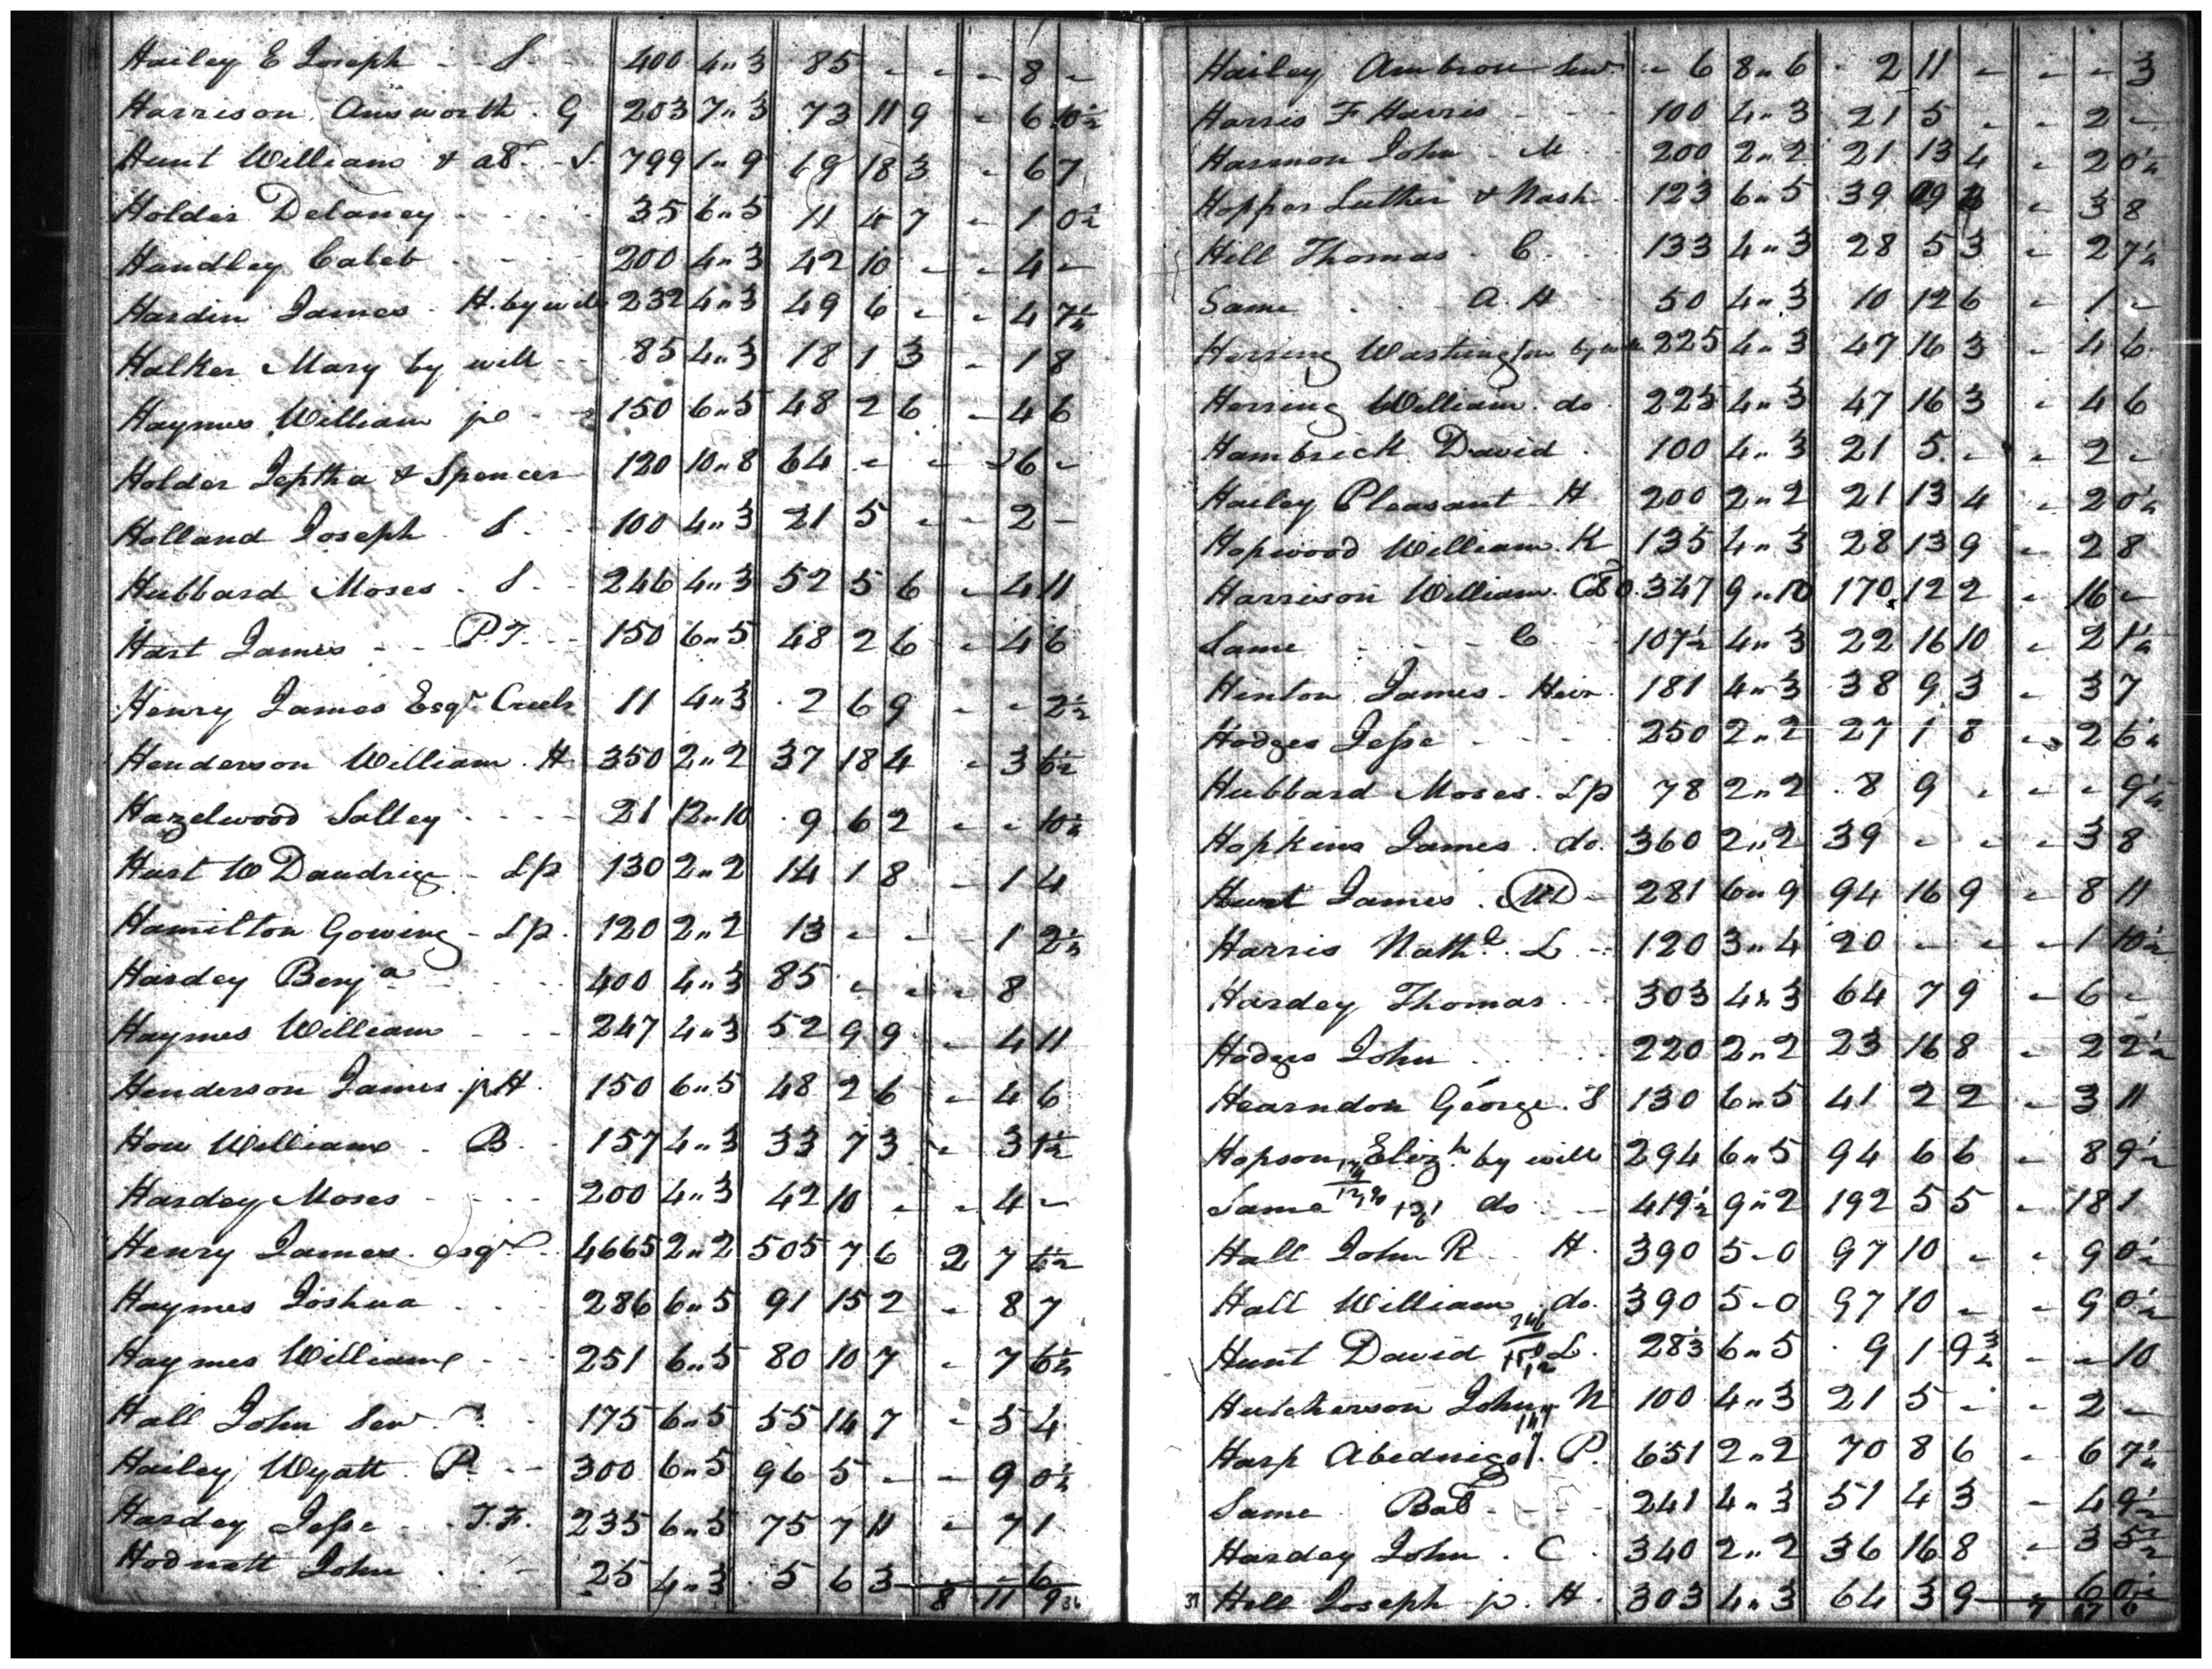 Hailey E Joseph - - S - 400 4"3 85 - - - 8 -
Harrison Ausworth . G 203 7"3 73 11 9 - 6 10½
Hunt William & als - S. 799 1"9 69 18 3 - 6 7
Holder Delaney - - - - 35 6"5 11 4 7 - 1 0½
Handley Caleb - - - - 200 4"3 42 10 - - 4 -
Hardin James - H. by will 232 4"3 49 6 - - 4 7½
Halker Mary by will - - 85 4"3 18 1 3 - 1 8
Haymes William jr - - 150 6"5 48 2 6 - 4 6
Holder Jeptha & Spencer 120 10"8 64 - - - 6 -
Holland Joseph . S. - - 100 4"3 21 5 - - 2 -
Hubbard Moses . S - - 246 4"3 52 5 6 - 4 11
Hart James - - P.T. - - 150 6"5 48 2 6 - 4 6
Henry James Esqr Creek 11 4"3 . 2 6 9 - - 2½
Henderson William . H 350 2"2 37 18 4 - 3 6½
Hazelwood Salley - - - - 21 12"10 . 9 6 2 - - 10½
Hart W Dandrige - Sp 130 2"2 14 1 8 - 1 4
Hamilton Gowing - Sp. 120 2"2 13 - - - 1 2½
Hardey Benja - - - - 400 4"3 85 - - - 8
Haymes William - - - 247 4"3 52 9 9 - 4 11
Henderson James jr H. 150 6"5 48 2 6 - 4 6
How William . B. 157 4"3 33 7 3 - 3 1½
Hardey Moses - - - - 200 4"3 42 10 - - 4 -
Henry James . esqr - 4665 2"2 505 7 6 2 7 6½
Haymes Joshua . . . 286 6"5 91 15 2 - 8 7
Haymes William - - 251 6"5 80 10 7 - 7 6½
Hall John Senr - 175 6"5 55 14 7 - 5 4
Hailey Wyatt . P. - - 300 6"5 96 5 - - 9 0½
Hardey Jesse - . T.F. 235 6"5 75 7 11 - 7 1
Hodnett John . . - 25 4"3 . 5 6 3 - - 6
8 11 9
Hailey Ambrose Senr - 6 8"6 . 2 11 - - - 3
Harris F Harris - - - 100 4"3 21 5 - - 2 -
Harmon John . M . 200 2"2 21 13 4 - 2 0½
Hopper Luther & Nash . 123 6"5 39 - 3 8
Hill Thomas . C . 133 4"3 28 5 3 - 2 7½
Same . . A H 50 4"3 10 12 6 - 1 -
Herring Washington by will 225 4"3 47 16 3 - 4 6
Herring William . do . 225 4"3 47 16 3 - 4 6
Hambrick David . 100 4"3 21 5 - - 2 -
Hailey Pleasant H . 200 2"2 21 13 4 - 2 0½
Hopwood William . K 135 4"3 28 13 9 - 2 8
Harrison William . 347 9"10 170 12 2 - 16 -
Same - - - C 107½ 4"3 22 16 10 - 2 1½
Hinton James - Heir . 181 4"3 38 9 3 - 3 7
Hodges Jesse - - - - 250 2"2 27 1 8 - 2 6½
Hubbard Moses . Sp 78 2"2 . 8 9 - - - 9½
Hopkins James . do . 360 2"2 39 - - - 3 8
Hunt James . MD - 281 6"9 94 16 9 - 8 11
Harris Nathl . L . - 120 3"4 20 - - - 1 10½
Hardey Thomas - - 303 4"3 64 7 9 - 6 -
Hodges John . . . . 220 2"2 23 16 8 - 2 2½
Hearndon George . S 130 6"5 41 2 2 - 3 11
Hopson Elizh by will 294 6"5 94 6 6 - 8 9½
Same do - 419½ 9"2 192 5 5 - 18 1
Hall John R - H . 390 5-0 97 10 - - 9 0½
Hall William . do . 390 5-0 97 10 - - 9 0½
Hunt David L . 28½ 6"5 . 9 1 9 - - 10
Hutcherson John N 100 4"3 21 5 - - 2 -
Harp Abednigo . P. 651 2"2 70 8 6 - 6 7½
Same Bat - - - 241 4"3 51 4 3 - 4 9½
Hardey John . C . 340 2"2 36 16 8 - 3 5½
37 Hill Joseph jr . H . 303 4"3 64 3 9 - 6 0½
7 17 6